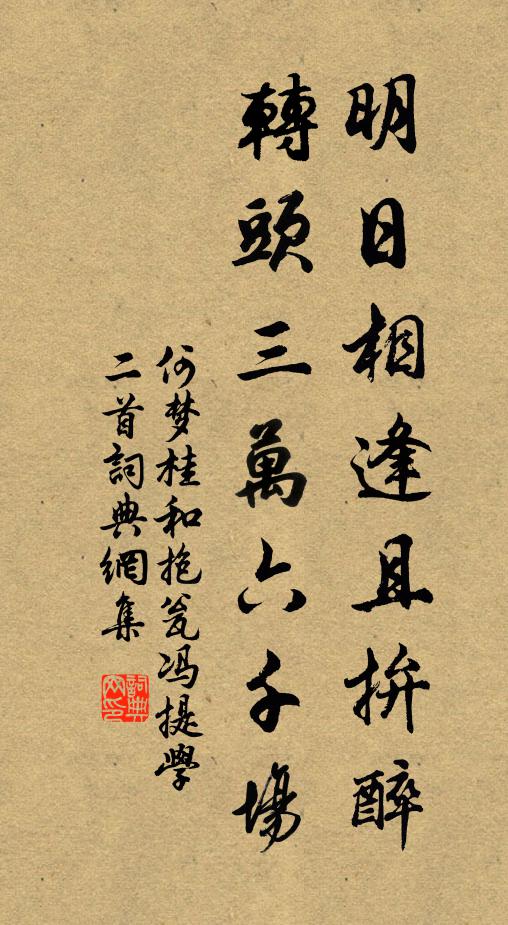 明日相逢且拚醉
轉頭三萬六千場
何梦桂和抱瓮冯提學
二首詞典網集
詞典网印